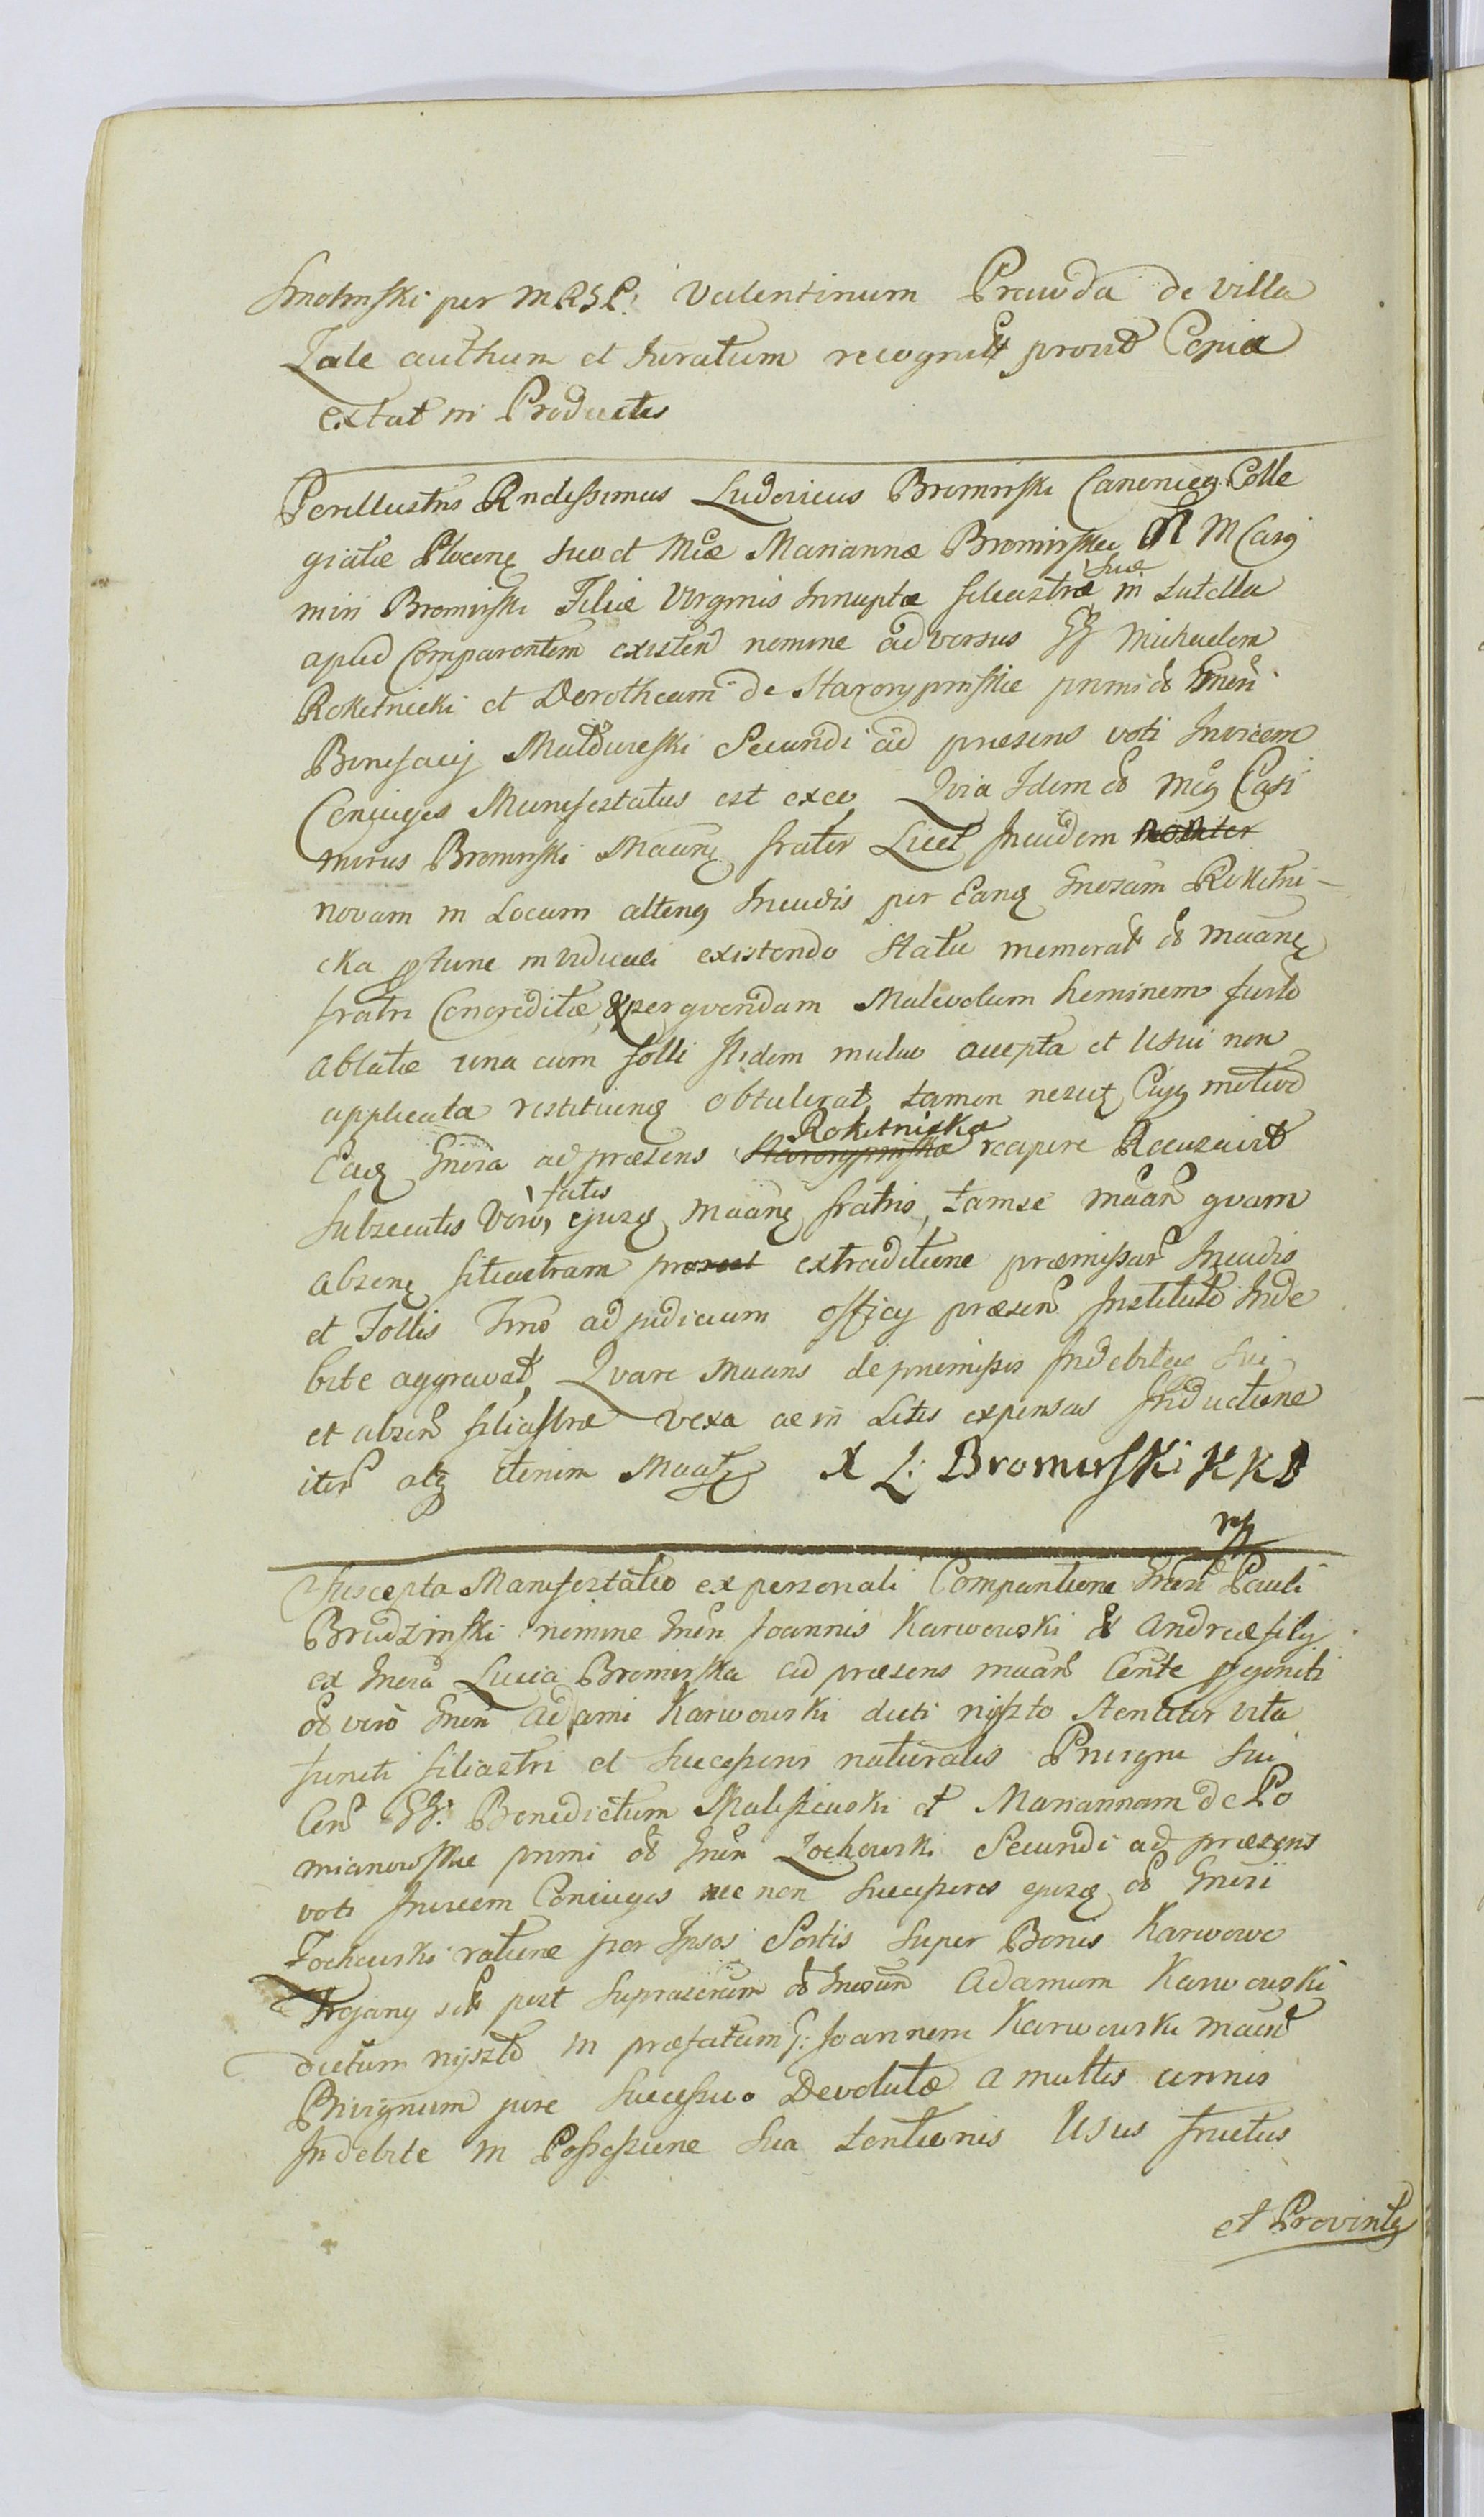 Smolinski per MRSP: Valentinum Prawda de villa
Zale authum et Juratum recognit prout Copia
extat in Productis
Perillustris Rndissimus Ludovicus Bromirski Canonicq Colle
giatæ Plocenę suo et Mcæ Mariannæ Bromirskæ M Casi
miri Bromirski Filiæ Virginis Innuptæ filiastræ suæ in tutella
apud Comparentem existen nomine adversus GG Michaelem
Rokitnicki et Dorotheam de Staroryprnskie primi olim Gneri
Bonifacij Muldureski Secundi ad præsens voti Invicem
Conjuges Manifestatus est exeo Quia Idem olim Mcq Casi
mirus Bromirski Maanę frater Licet Incudem
novam in Locum alterius Incudis per Eandę Gnosam Rokitni-
cka ptunc in viduali existendo Statu memorat olim maanę
fratri Concreditæ & per quendam Malevolum hominem furto
ablatæ una cum folli itidem mutuo accepta et Usui non
applicata restituendę obtulerat, tamen nescitę Cujq motivo
Eadę Gnera ad præsens Rokitnicka recipere Recusavit
subsecutis Vero, fatis ejusdę Maanę fratris, tam se maan quam
absenę filiastram extraditione præmissar Incudis
et Follis Imo ad judicium officij præsen Institut Inde
bite aggravat, Quare Maans de præmissis Indebitaq sui
et absen filiastræ vexa ac in Litis expensas Inductione
iter atq iterum Maatq X L: Bromirski KKP
mp
Suscepta Manifestatio ex personali Comparitione Gnesi Pauli
Brudzinski nomine Gnen Joannis Karwowski & Andreæ filij
ex Gnera Lucia Bromirska ad præsens maan Conte progeniti
olim viro Gnen Adami Karwowski dicti nyszto Stentur vita
functi filiastri et Successoris naturalis Privigni sui
Con GG: Benedictum Maliszewski et Mariannam de Po
mianowskie primi olim Gnen Zochowski Secundi ad præsens
voti Invicem Conjuges nec non Successores ejusdę olim Gnesi
Zochowski ratione per Ipsos Sortis super Bonis Karwowo
Trojany sitæ post suprascrum olim Gnosum Adamum Karwowski
dictum nyszto in præfatum G: Joannem Karwowski maan
Privignum jure Successivo Devolutæ a multis annis
Indebite in Possessione sua tentionis Usus fructus
et Proventq